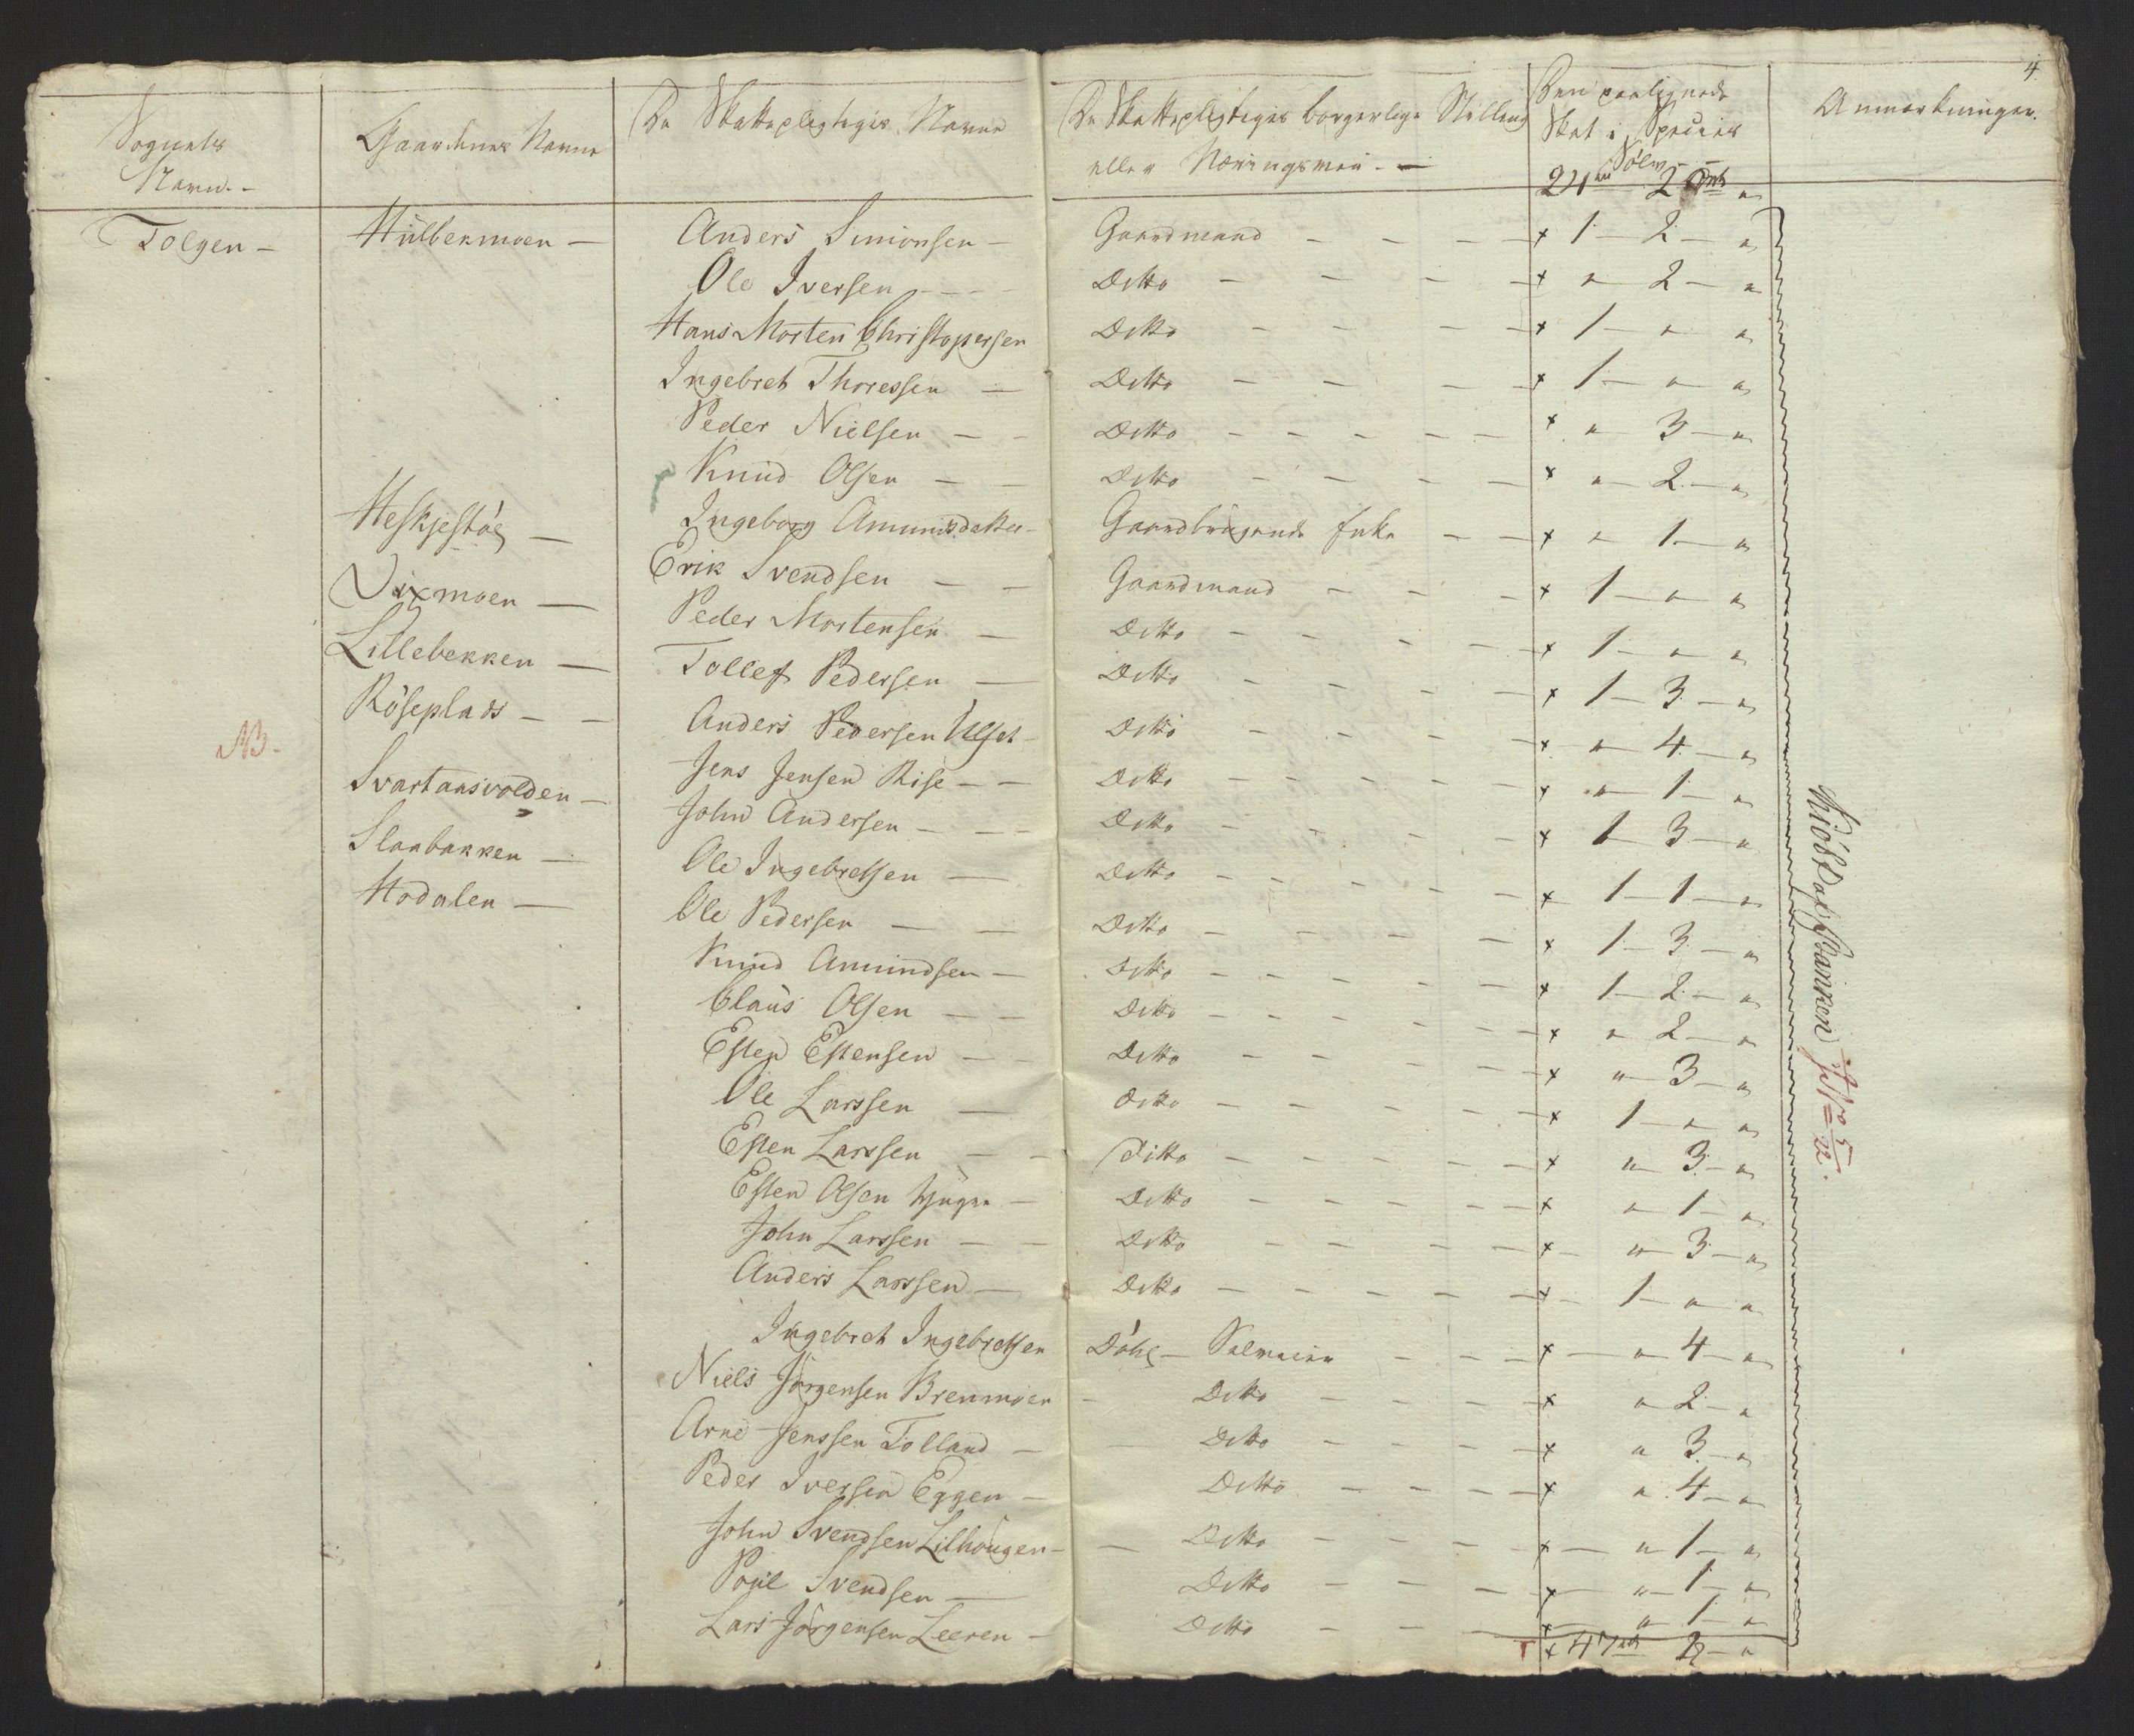 4.
Sognets Navn. - Gaardenes Navne De Skattepligtiges Navne De Skattepligtiges borgerlige Stilling eller Næringsvei. - Den paalignede Skat i Species Sölv Anmærkninger.
24 2
Tolgen - Hulbekmoen - Anders Simonsen - Gaardmand - - - - x 1 - 2 - "
Ole Iversen - - - Ditto - - - - x " - 2 - "
Hans Morten Christopersen Ditto - - - - x 1 - " - "
Ingebret Thoressen - Ditto - - - - x 1 - " - "
Peder Nielsen - - Ditto - - - - - x " 3 - "
Knud Olsen - - Ditto - - - - x " - 2 - "
Ingeborg Amundsdatter - Gaardbrugende Enke - - x " - 1 - "
Erik Svendsen - - Gaardmand - - - x 1 - " - "
Vixmoen - Peder Mortensen - Ditto - - - - x 1 - " - "
Lillebekken - Tollef Pedersen - Ditto - - - - x 1 - 3 - "
Röseplads - - Anders Pedersen Ulset - Ditto - - - - x " - 4 - "
NB.
Jens Jensen Rise - - Ditto - - - - x " - 1 - "
Svartaasvolden - John Andersen - - - Ditto - - - - x 1 - 3 - "
Slaabakken - Ole Ingebretsen - Ditto - - - - - x 1 - 1 - "
Hodalen - Ole Pedersen - - Ditto - - - - x 1 - 3 - "
Knud Amundsen - Ditto - - - - x 1 - 2 - "
Claus Olsen - - Ditto - - - - - x " - 2 - "
Esten Estensen - - Ditto - - - - x " - 3 - "
Ole Larssen - Ditto - - - - x 1 - " - "
Esten Larssen - - Ditto - - - - - x " - 3 - "
Esten Olsen - Ditto - - - - - x " - 1 - "
John Larssen - - Ditto - - - - x - " - 3 - "
Anders Larssen - Ditto - - - - - x - 1 - " - "
Ingebret Ingebretsen - - - x - " - 4 - "
Niels Jörgensen Brenmoen - Ditto - - - - x " - 2 - "
Arne Jenssen Tolland - - Ditto - - - - x " 3 - "
Peder Iversen Eggen - Ditto - - - - x " 4 - "
John Svendsen Lilhougen - - Ditto - - - - x - " - 1 - "
Poul Svendsen - Ditto - - - x - " - 1 - "
Lars Jörgensen Leeren - Ditto - - - x - " - 1 - "
x 47 2 - "